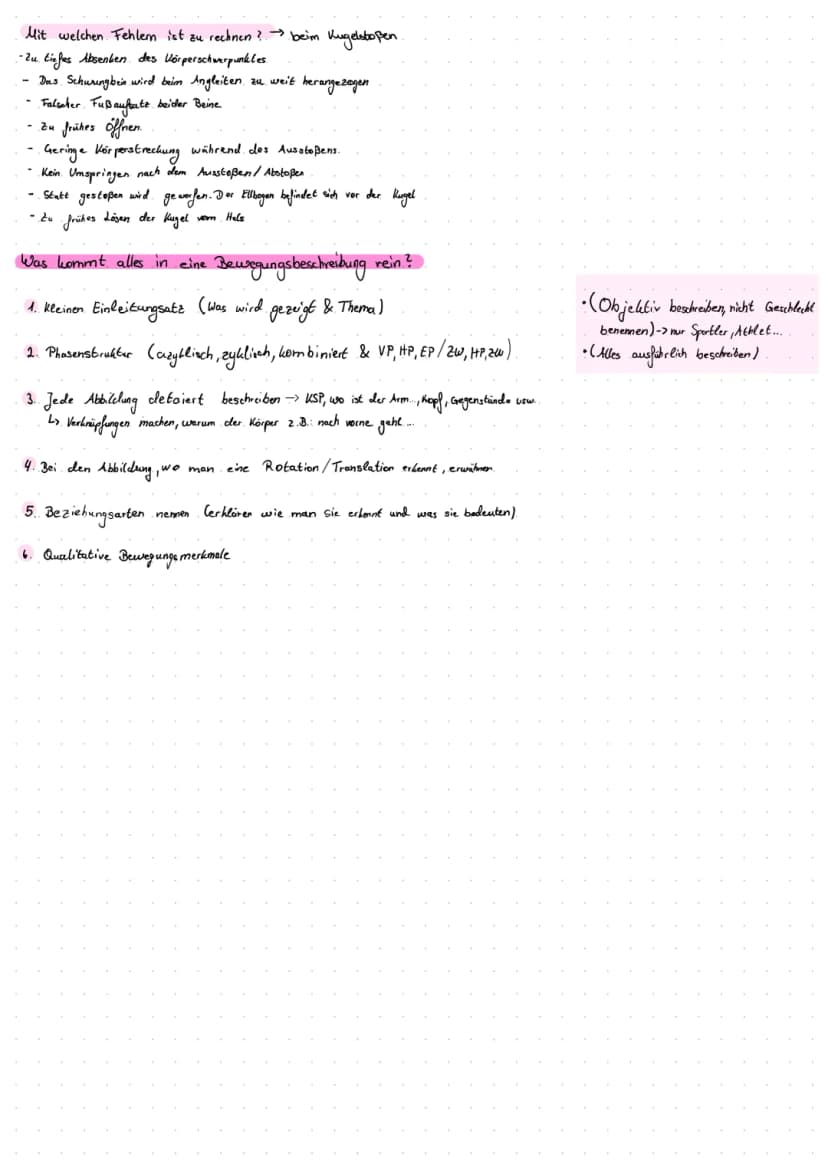 Mit welchen Fehlern ist zu rechnen? → beim Kugelstoßen
- Zu tiefes Absenken des Körperschwerpunktes
- Das Schwungbein wird beim Angleiten zu weit herangezogen
- Falscher Fußaufsatz beider Beine
- Zu frühes Öffnen.
- Geringe Körperstreckung während des Ausstoßens.
- Kein Umspringen nach dem Ausstoßen/Abstoßen
- Statt gestoßen wird geworfen. Der Ellbogen befindet sich vor der Kugel
- Zu frühes Lösen der Kugel vom Hals
Was kommt alles in eine Bewegungsbeschreibung rein?
1. Kleinen Einleitungsatz (Was wird gezeigt & Thema)
2. Phasenstruktur (azyklisch, zyklisch, kombiniert & VP, HP, EP/ZW, HP, ZW)
3. Jede Abbildung detaiert beschreiben → KSP, wo ist der Arm..., Kopf, Gegenstände usw.
↳ Verknüpfungen machen, warum der Körper z.B.: nach vorne geht...
4. Bei den Abbildung, wo man eine Rotation/Translation erkennt, erwähnen
5. Beziehungsarten nennen (erklären wie man sie erkennt und was sie bedeuten)
6. Qualitative Bewegungsmerkmale
•(Objektiv beschreiben, nicht Geschlecht
benennen) -> nur Sportler, Athlet...
•(Alles ausführlich beschreiben)